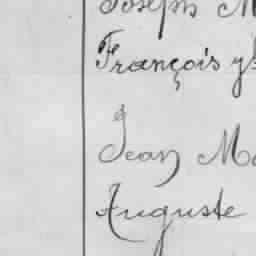 Joseph M
François
Jean Ma
Auguste